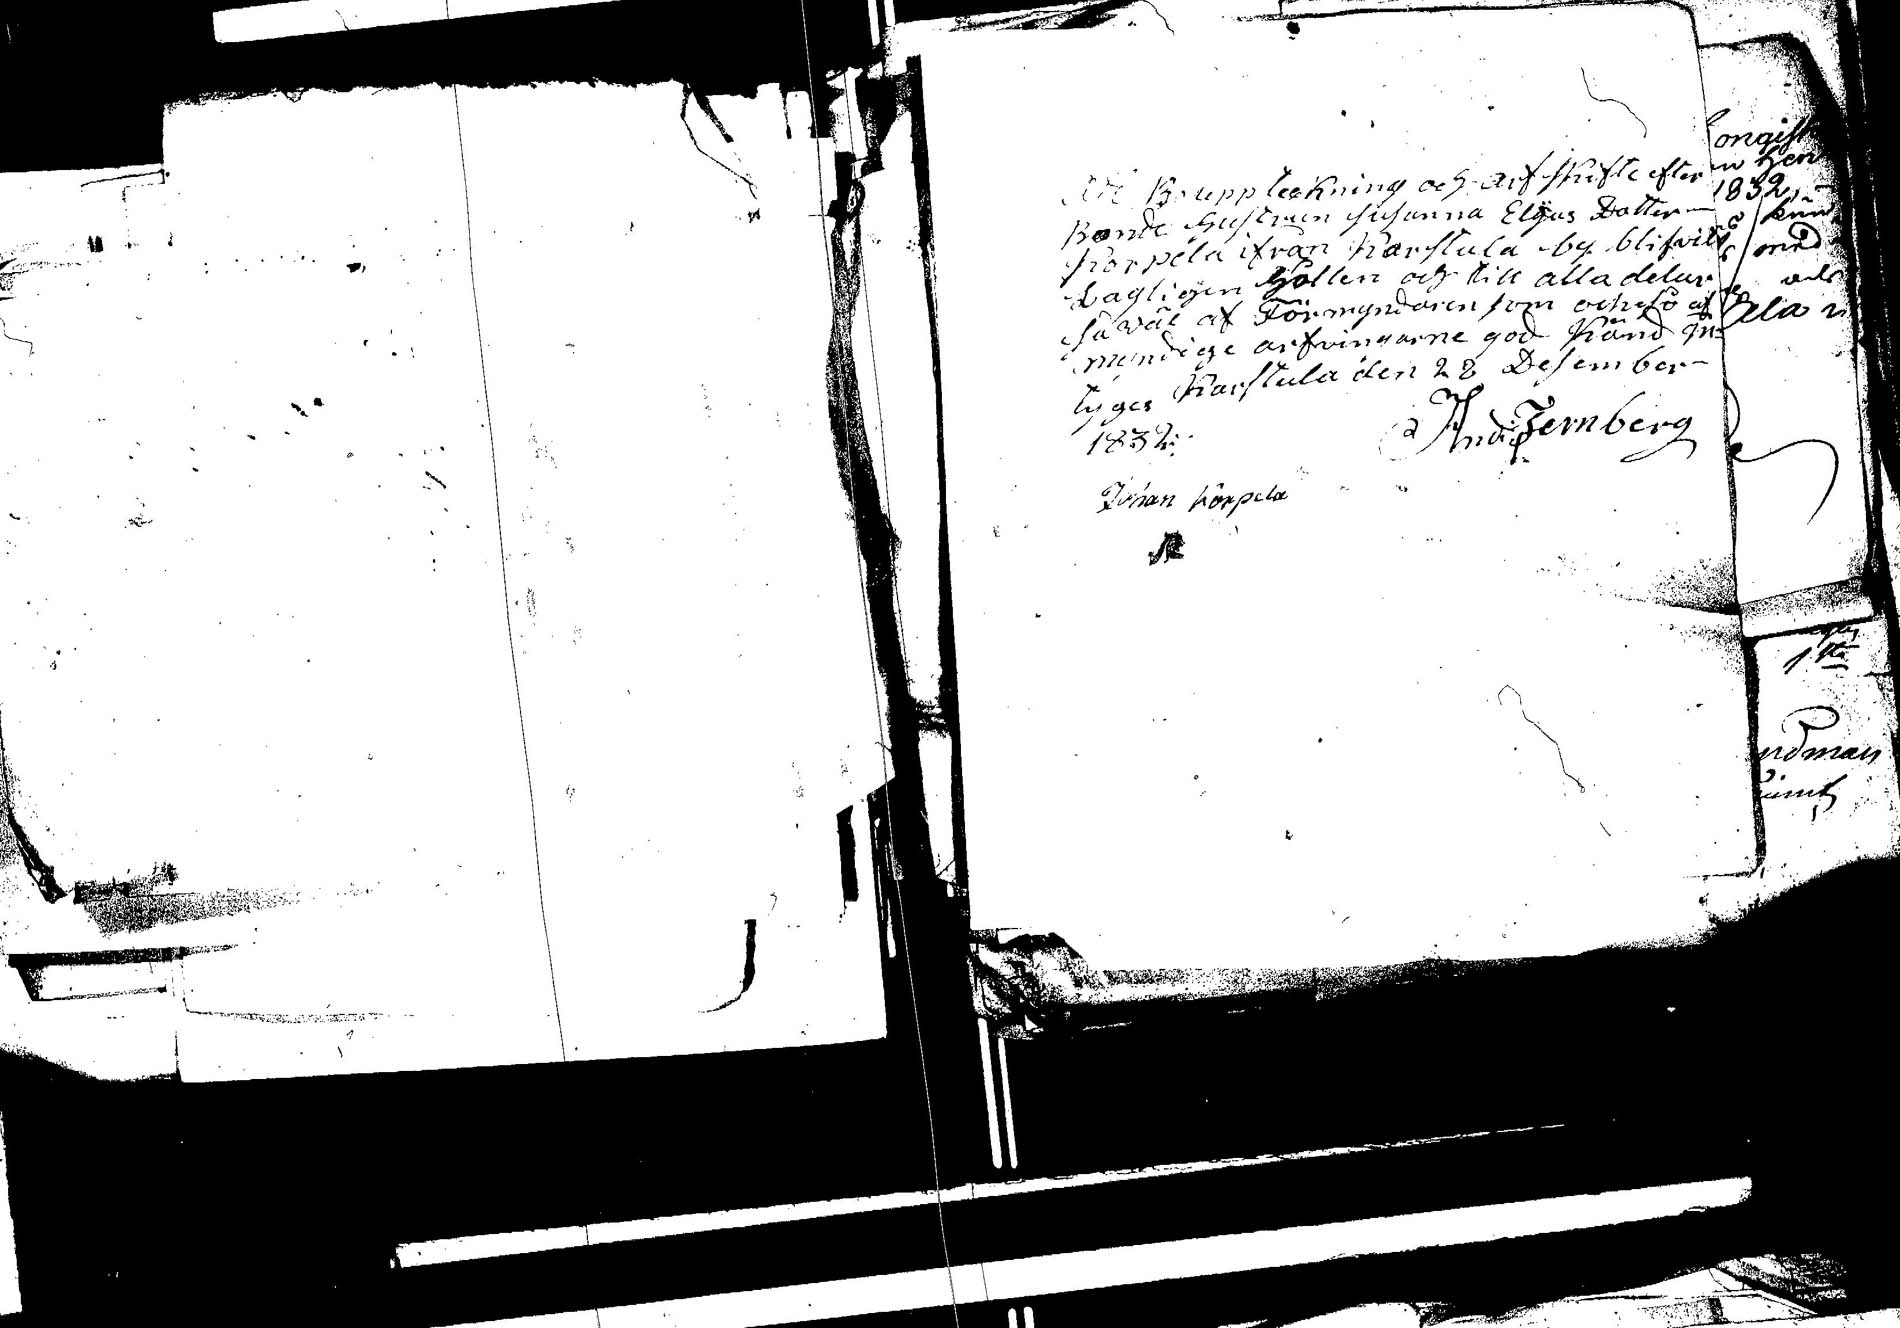 Att Bouppteckning och Arfskifte efter
Bonde Hustrun Susanna Elyas Dotter
Korpela ifrån Karstula by blifvit
Lagligen Hållen och till alla delar
så väl af Förmyndaren som ochså af
myndige arfvingarne god känd In-
tyges Karstula den 28 Desember
1832.
And: Jernberg
Johan Korpela
1832
med
1sta